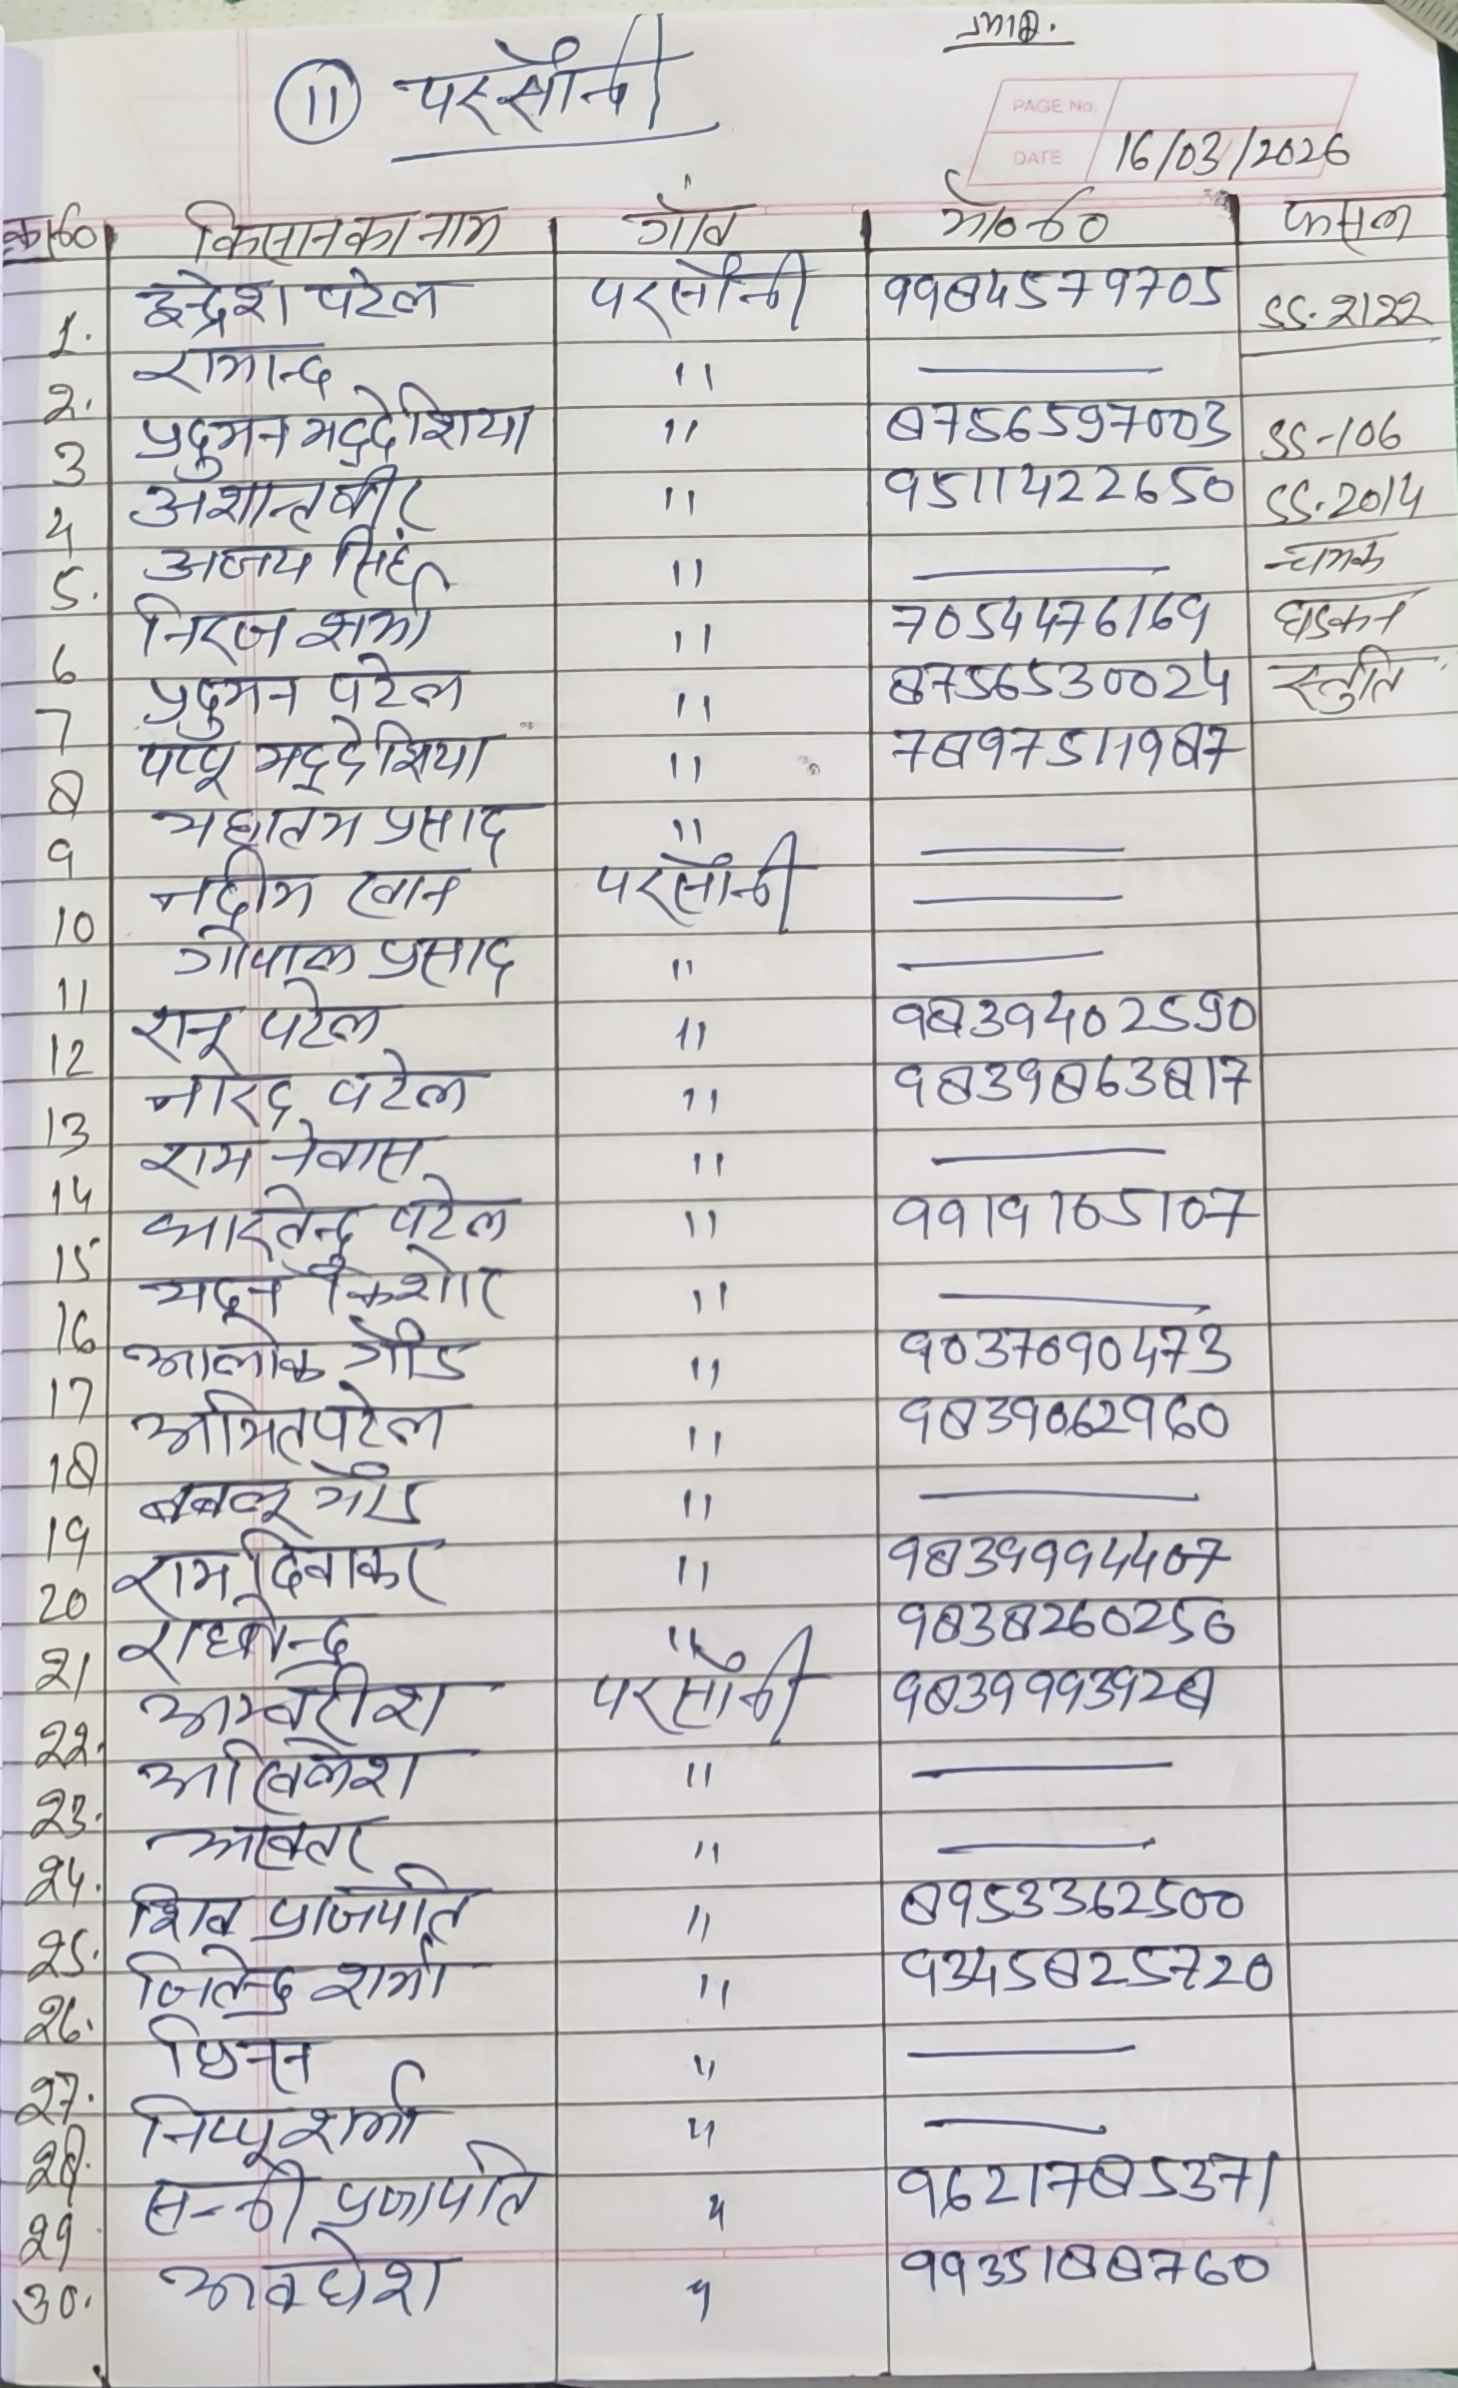 11 परसौनी
PAGE No.
DATE 16/03/2026
क्र०सं० किसान का नाम गाँव मो०नं० फसल
1. इन्द्रेश पटेल परसौनी 9984579705 SS-2122
2. रामान्द " —
3 प्रदुमन मद्देशिया " 8756597003 SS-106
4 अशान्तवीर " 9511422650 SS-2014
5. अजय सिंह " — चमक
6 निरज शर्मा " 7054476169 धडकन
7 प्रदुमन पटेल " 8756530024 स्तुति
8 पप्पू मद्देशिया " 7897511987
9 महातम प्रसाद " —
10 नदीम खान परसौनी —
11 गोपाल प्रसाद " —
12 रानू पटेल " 9839402590
13 नारेद्र पटेल " 9839863817
14 राम नेवास " —
15 भारतेन्दु पटेल " 9919165107
16 मदन किशोर " —
17 आलोक गौड " 9037090473
18 अमित पटेल " 9839062960
19 बबलू गौंड " —
20 राम दिवाकर " 9839994407
21 राघवेन्द्र " 9838260256
22. अम्बरीश परसौनी 9839993928
23. अखिलेश " —
24. अख्तर " —
25. शिव प्राजपति " 8953362500
26. जितेन्द्र शर्मा " 9345825720
27. छिनन " —
28. निप्पू शर्मा " —
29 सन्नी प्रजापति " 9621785371
30. अवधेश " 9935188760